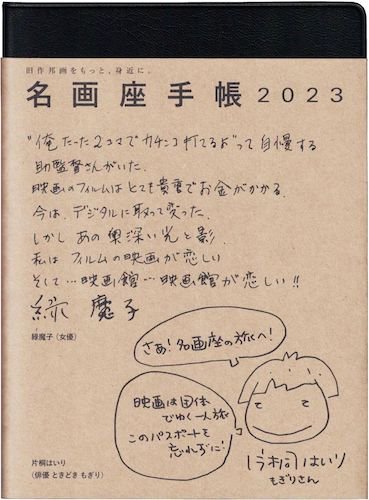 旧作邦画をもっと、身近に。
名画座手帳2023
"俺たった2コマでカチンコ打てるよ"って自慢する
助監督さんがいた.
映画のフィルムはとても貴重でお金がかかる.
今は、デジタルに取って変った.
しかし あの奥深い光と影.
私は フィルムの映画が恋しい
そして…映画館…映画館が恋しい!!
緑 魔子
緑魔子(女優)
さあ!名画座の旅へ!
映画は団体
でゆく一人旅
このパスポートを
忘れずに!
片桐はいり
もぎりさん
片桐はいり
(俳優 ときどき もぎり)